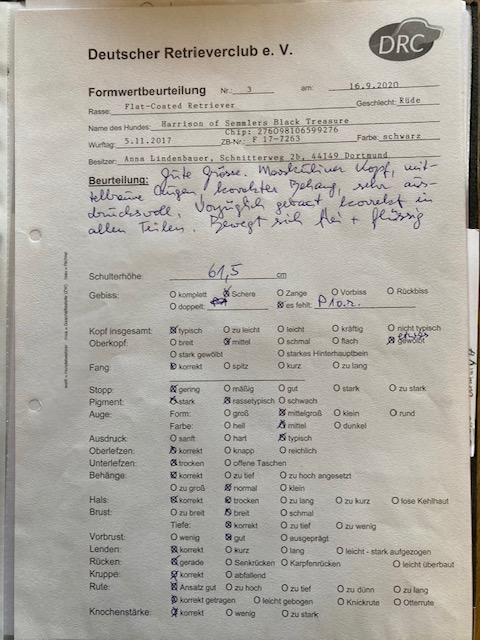 DRC
Deutscher Retrieverclub e. V.
Formwertbeurteilung Nr.: 3 am: 16.9.2020
Rasse: Flat-Coated Retriever Geschlecht: Rüde
Name des Hundes: Harrison of Semmlers Black Treasure
Chip: 276098106599276
Wurftag: 5.11.2017 ZB-Nr.: F 17-7263 Farbe: schwarz
Besitzer: Anna Lindenbauer, Schnitterweg 2b, 44149 Dortmund
Beurteilung: Gute Grösse. Maskuliner Kopf, mit-
telbraune Augen, korrekter Behang, sehr aus-
drucksvoll, Vorzüglich gebaut korrekt in
allen Teilen. Bewegt sich frei + flüssig
Schulterhöhe: 61,5 cm
Gebiss: komplett Schere Zange Vorbiss Rückbiss
doppelt: es fehlt: P1o.r.
Kopf insgesamt: typisch zu leicht leicht kräftig nicht typisch
etwas
Oberkopf: breit mittel schmal flach gewölbt
stark gewölbt starkes Hinterhauptbein
Fang: korrekt spitz kurz zu lang
Stopp: gering mäßig gut stark zu stark
Pigment: stark rassetypisch schwach
Auge: Form: groß mittelgroß klein rund
Farbe: hell mittel dunkel
Ausdruck: sanft hart typisch
Oberlefzen: korrekt knapp reichlich
Unterlefzen: trocken offene Taschen
Behänge: korrekt zu tief zu hoch angesetzt
zu groß normal klein
Hals: korrekt trocken zu lang zu kurz lose Kehlhaut
Brust: zu breit breit schmal
Tiefe: korrekt zu tief zu wenig
Vorbrust: wenig gut ausgeprägt
Lenden: korrekt kurz lang leicht - stark aufgezogen
Rücken: gerade Senkrücken Karpfenrücken leicht überbaut
Kruppe: korrekt abfallend
Rute: Ansatz gut zu hoch zu tief zu dünn zu lang
korrekt getragen leicht gebogen Knickrute Otterrute
Knochenstärke: korrekt wenig zu stark